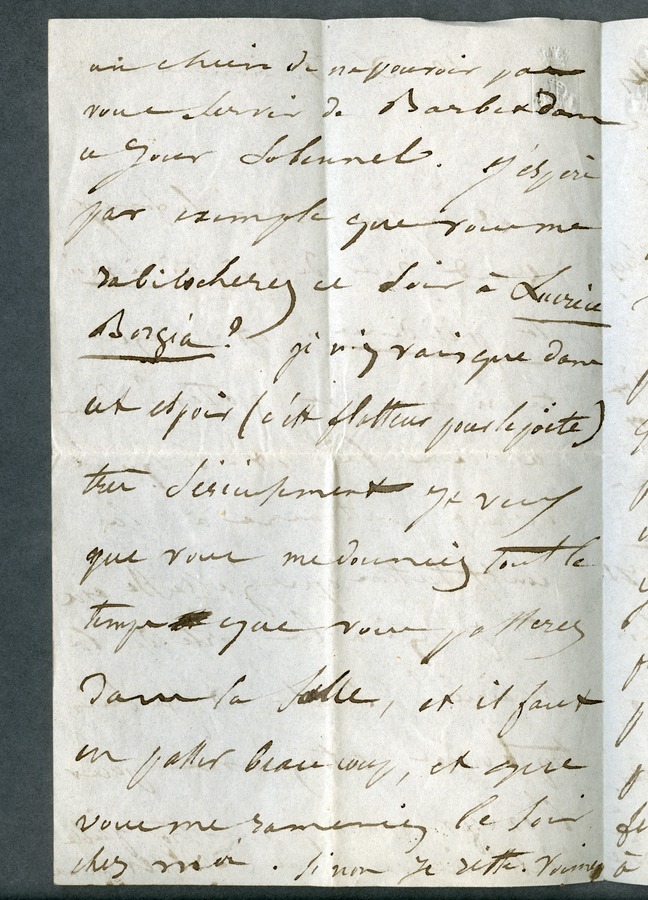 un chien de ne pouvoir pas
vous servir de Barbet dans
ce jour solennel. j'espère
par exemple que vous me
rabibocherez ce soir à Lucrèce
Borgia? je n'y vais que dans
cet espoir (c'est flatteur pour le poète)
très sérieusement je veux
que vous me donniez tout le
temps que vous passerez
dans la salle, et il faut
en passer beaucoup, et que
vous me rameniez le soir
chez moi. Sinon je reste.